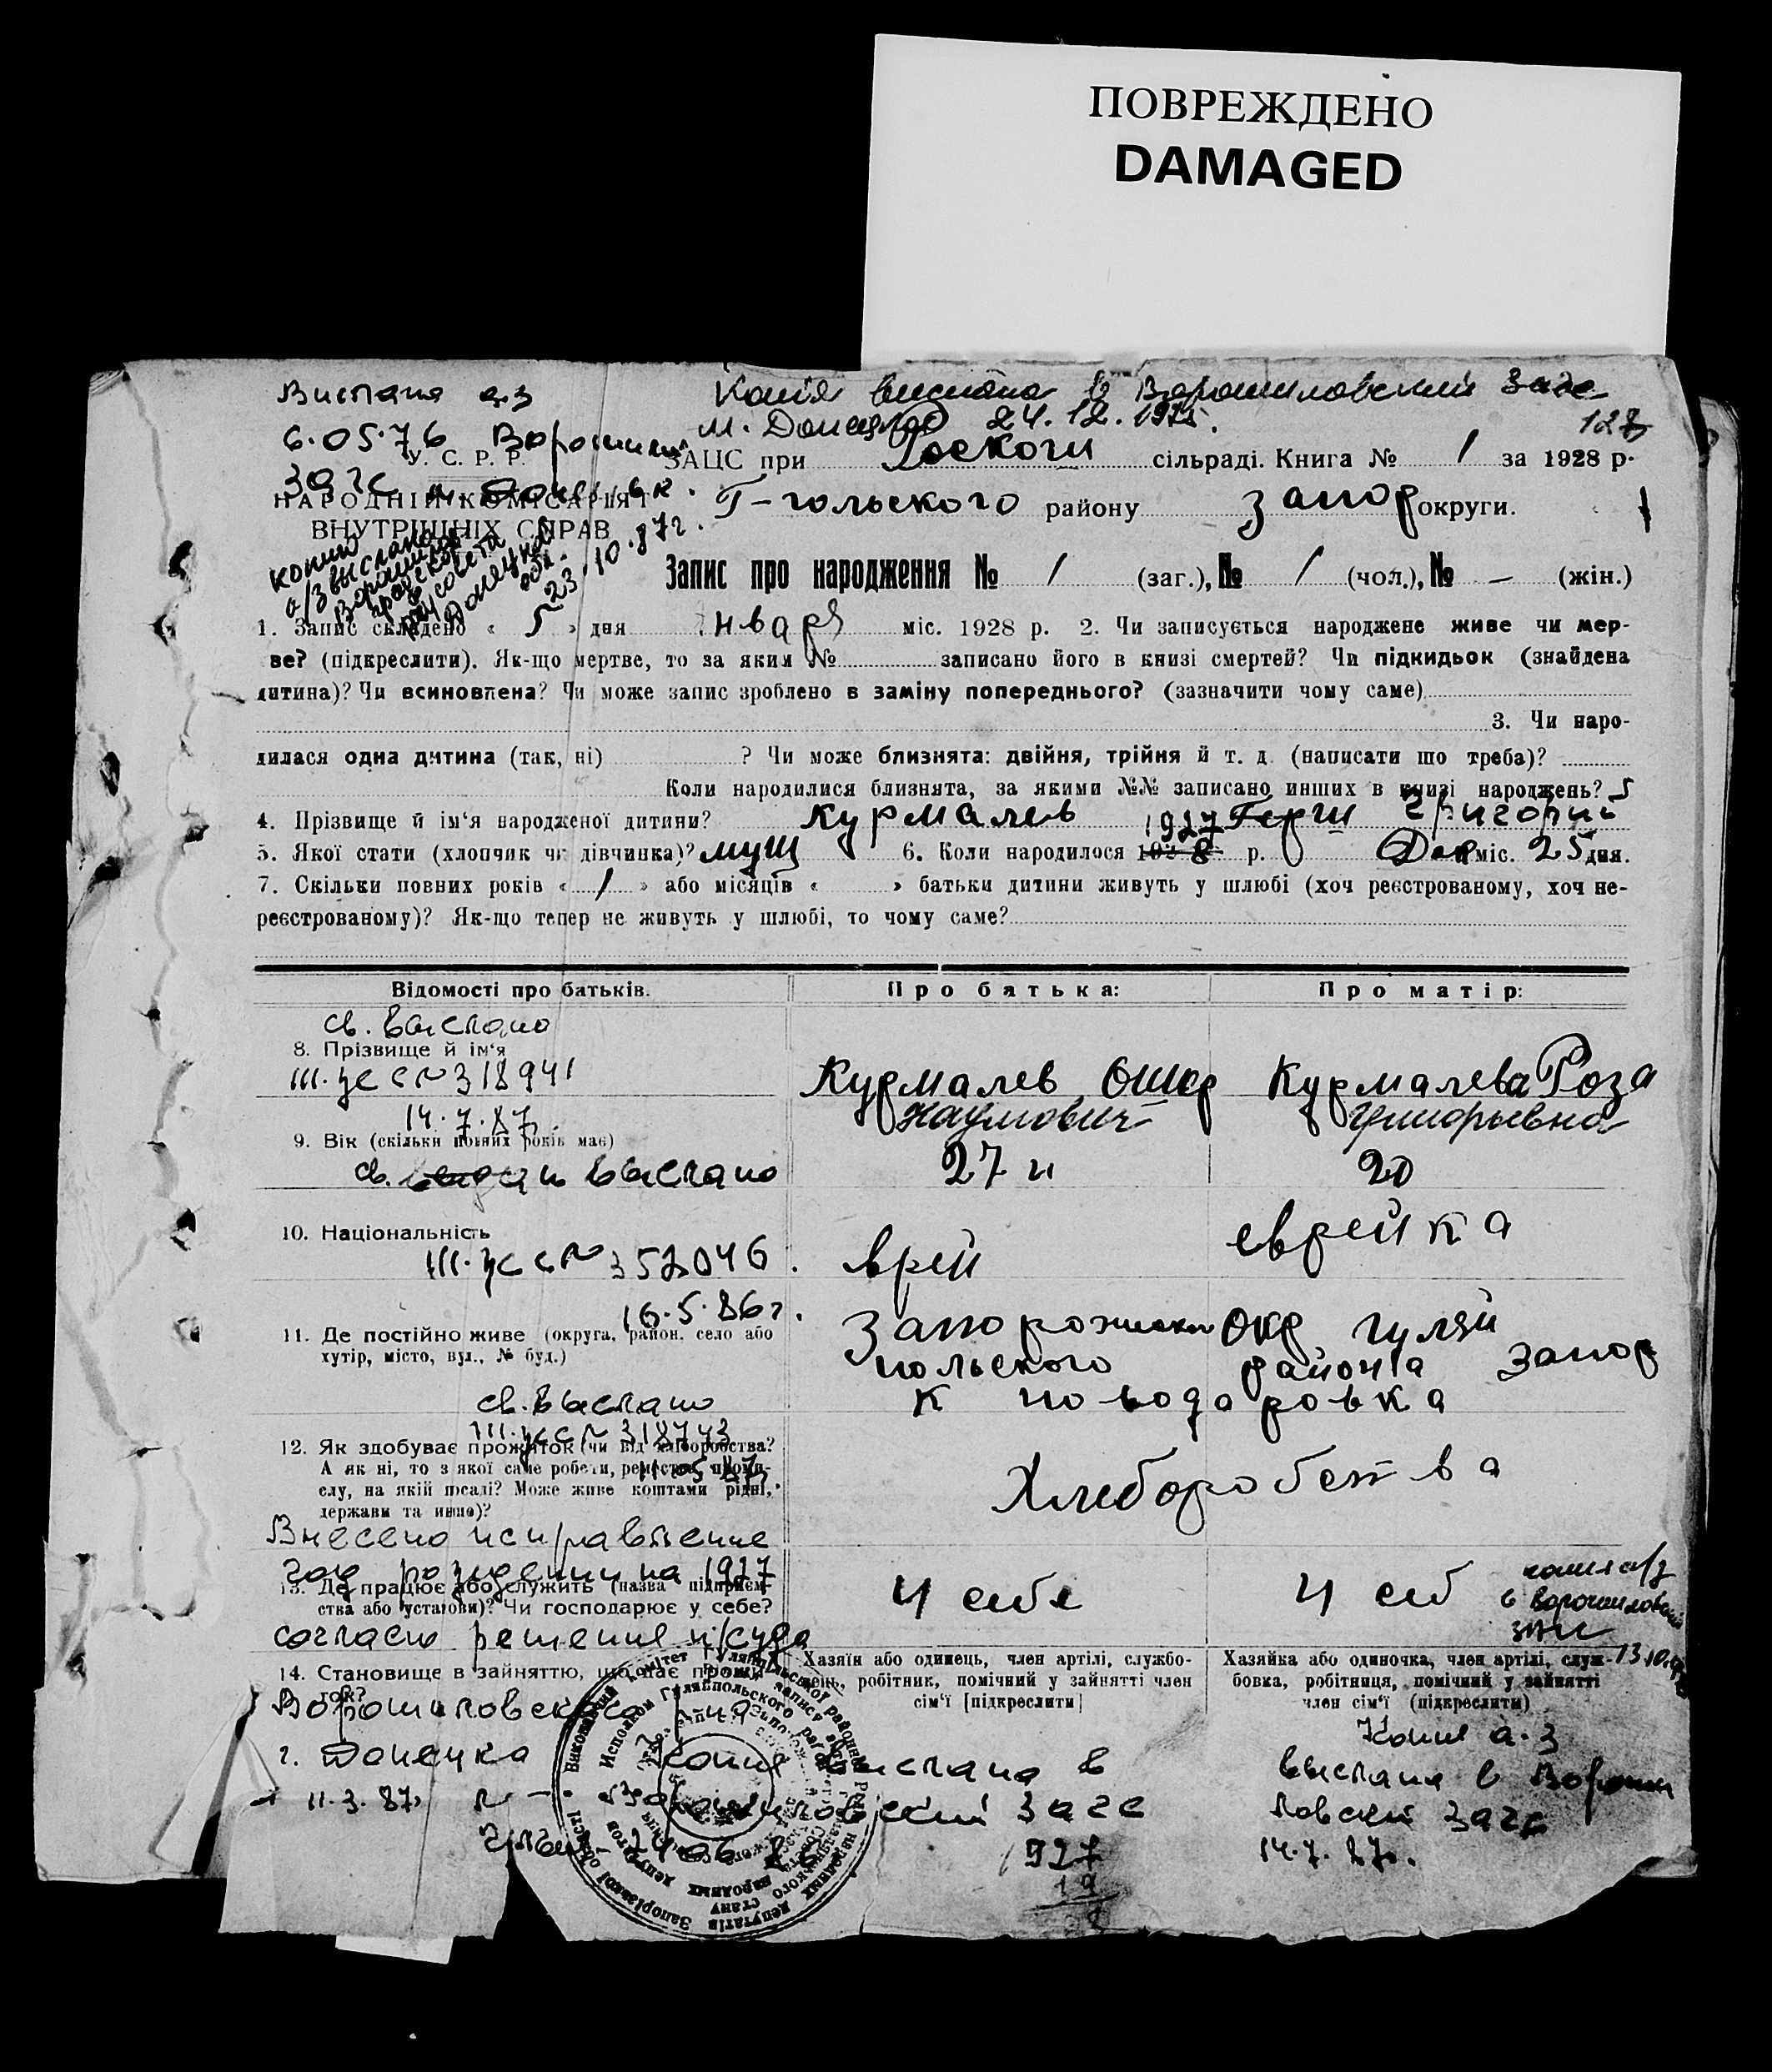 ПОВРЕЖДЕНО
DAMAGED
Копія вислана в Ворошиловский Загс
м. Донецка 24.12.1975.
127
Вислана а.з
6.05.76 Ворошил
У. С. Р. Р.
Загс
НАРОДНІЙ КОМІСАРІЯТ
ВНУТРІШНІХ СПРАВ
копию
а/з выслано
Ворошил
Донецкая
обл.
23.10.87г.
ЗАЦС при сільраді. Книга № 1 за 1928 р.
Г-польского району Запор округи.
Запис про народження № 1 (заг.), № 1 (чол.), № – (жін.)
1. Запис складено « 5 » дня Января міс. 1928 р. 2. Чи записується народжене живе чи мер-
ве? (підкреслити). Як-що мертве, то за яким № записано його в книзі смертей? Чи підкидьок (знайдена
дитина)? Чи всиновлена? Чи може запис зроблено в заміну попереднього? (зазначити чому саме)
3. Чи наро-
дилася одна дитина (так, ні) ? Чи може близнята: двійня, трійня й т. д. (написати що треба)?
Коли народилися близнята, за якими №№ записано инших в книзі народжень? 5
4. Прізвище й ім'я народженої дитини? Курмалев Герш Григорий
5. Якої стати (хлопчик чи дівчинка)? мущ 6. Коли народилося 1928 1927 р. Дек міс. 25 дня.
7. Скільки повних років « 1 » або місяців « » батьки дитини живуть у шлюбі (хоч реєстрованому, хоч не-
реєстрованому)? Як-що тепер не живуть у шлюбі, то чому саме?
Відомості про батьків. Про батька: Про матір:
св. выслано
8. Прізвище й ім'я
Курмалев Ошер Курмалева Роза
III-УР № 318941
Наумович Григорьевна
14.7.87
9. Вік (скільки повних років має)
27 л 20
св. выслано
10. Національність
врей еврейка
№ 352046
16.5.86г.
11. Де постійно живе (округа, район, село або
хутір, місто, вул., № буд.)
Запорожский окр гуляй
польского района Запор
к новодаровка
св. выслано
№ 318743
12. Як здобуває прожиток (чи від хліборобства?
А як ні, то з якої саме роботи, ремества, промис-
слу, на якій посаді? Може живе коштами рідні,
держави та инше)?
Хлеборобства
11.05.87г
Внесено исправление
год рождения на 1927
13. Де працює або служить (назва підприєм-
ства або установи)? Чи господарює у себе?
у себя у себ
копия а/з
в Ворошиловский
загс
13.10.
согласно решения н/суда
14. Становище в зайняттю, що дає прожи-
ток?
Хазяїн або одинець, член артілі, службо-
вець, робітник, помічний у зайнятті член
сім'ї [підкреслити]
Хазяйка або одиночка, член артілі, служ-
бовка, робітниця, помічний у зайнятті
член сім'ї (підкреслити)
Ворошиловского р-на
г. Донецка
от 11.3.87г
Копия выслана в
Ворошиловский Загс
1927
19
Копия а.з
выслана в Вороши
ловский Загс
14.7.87г.